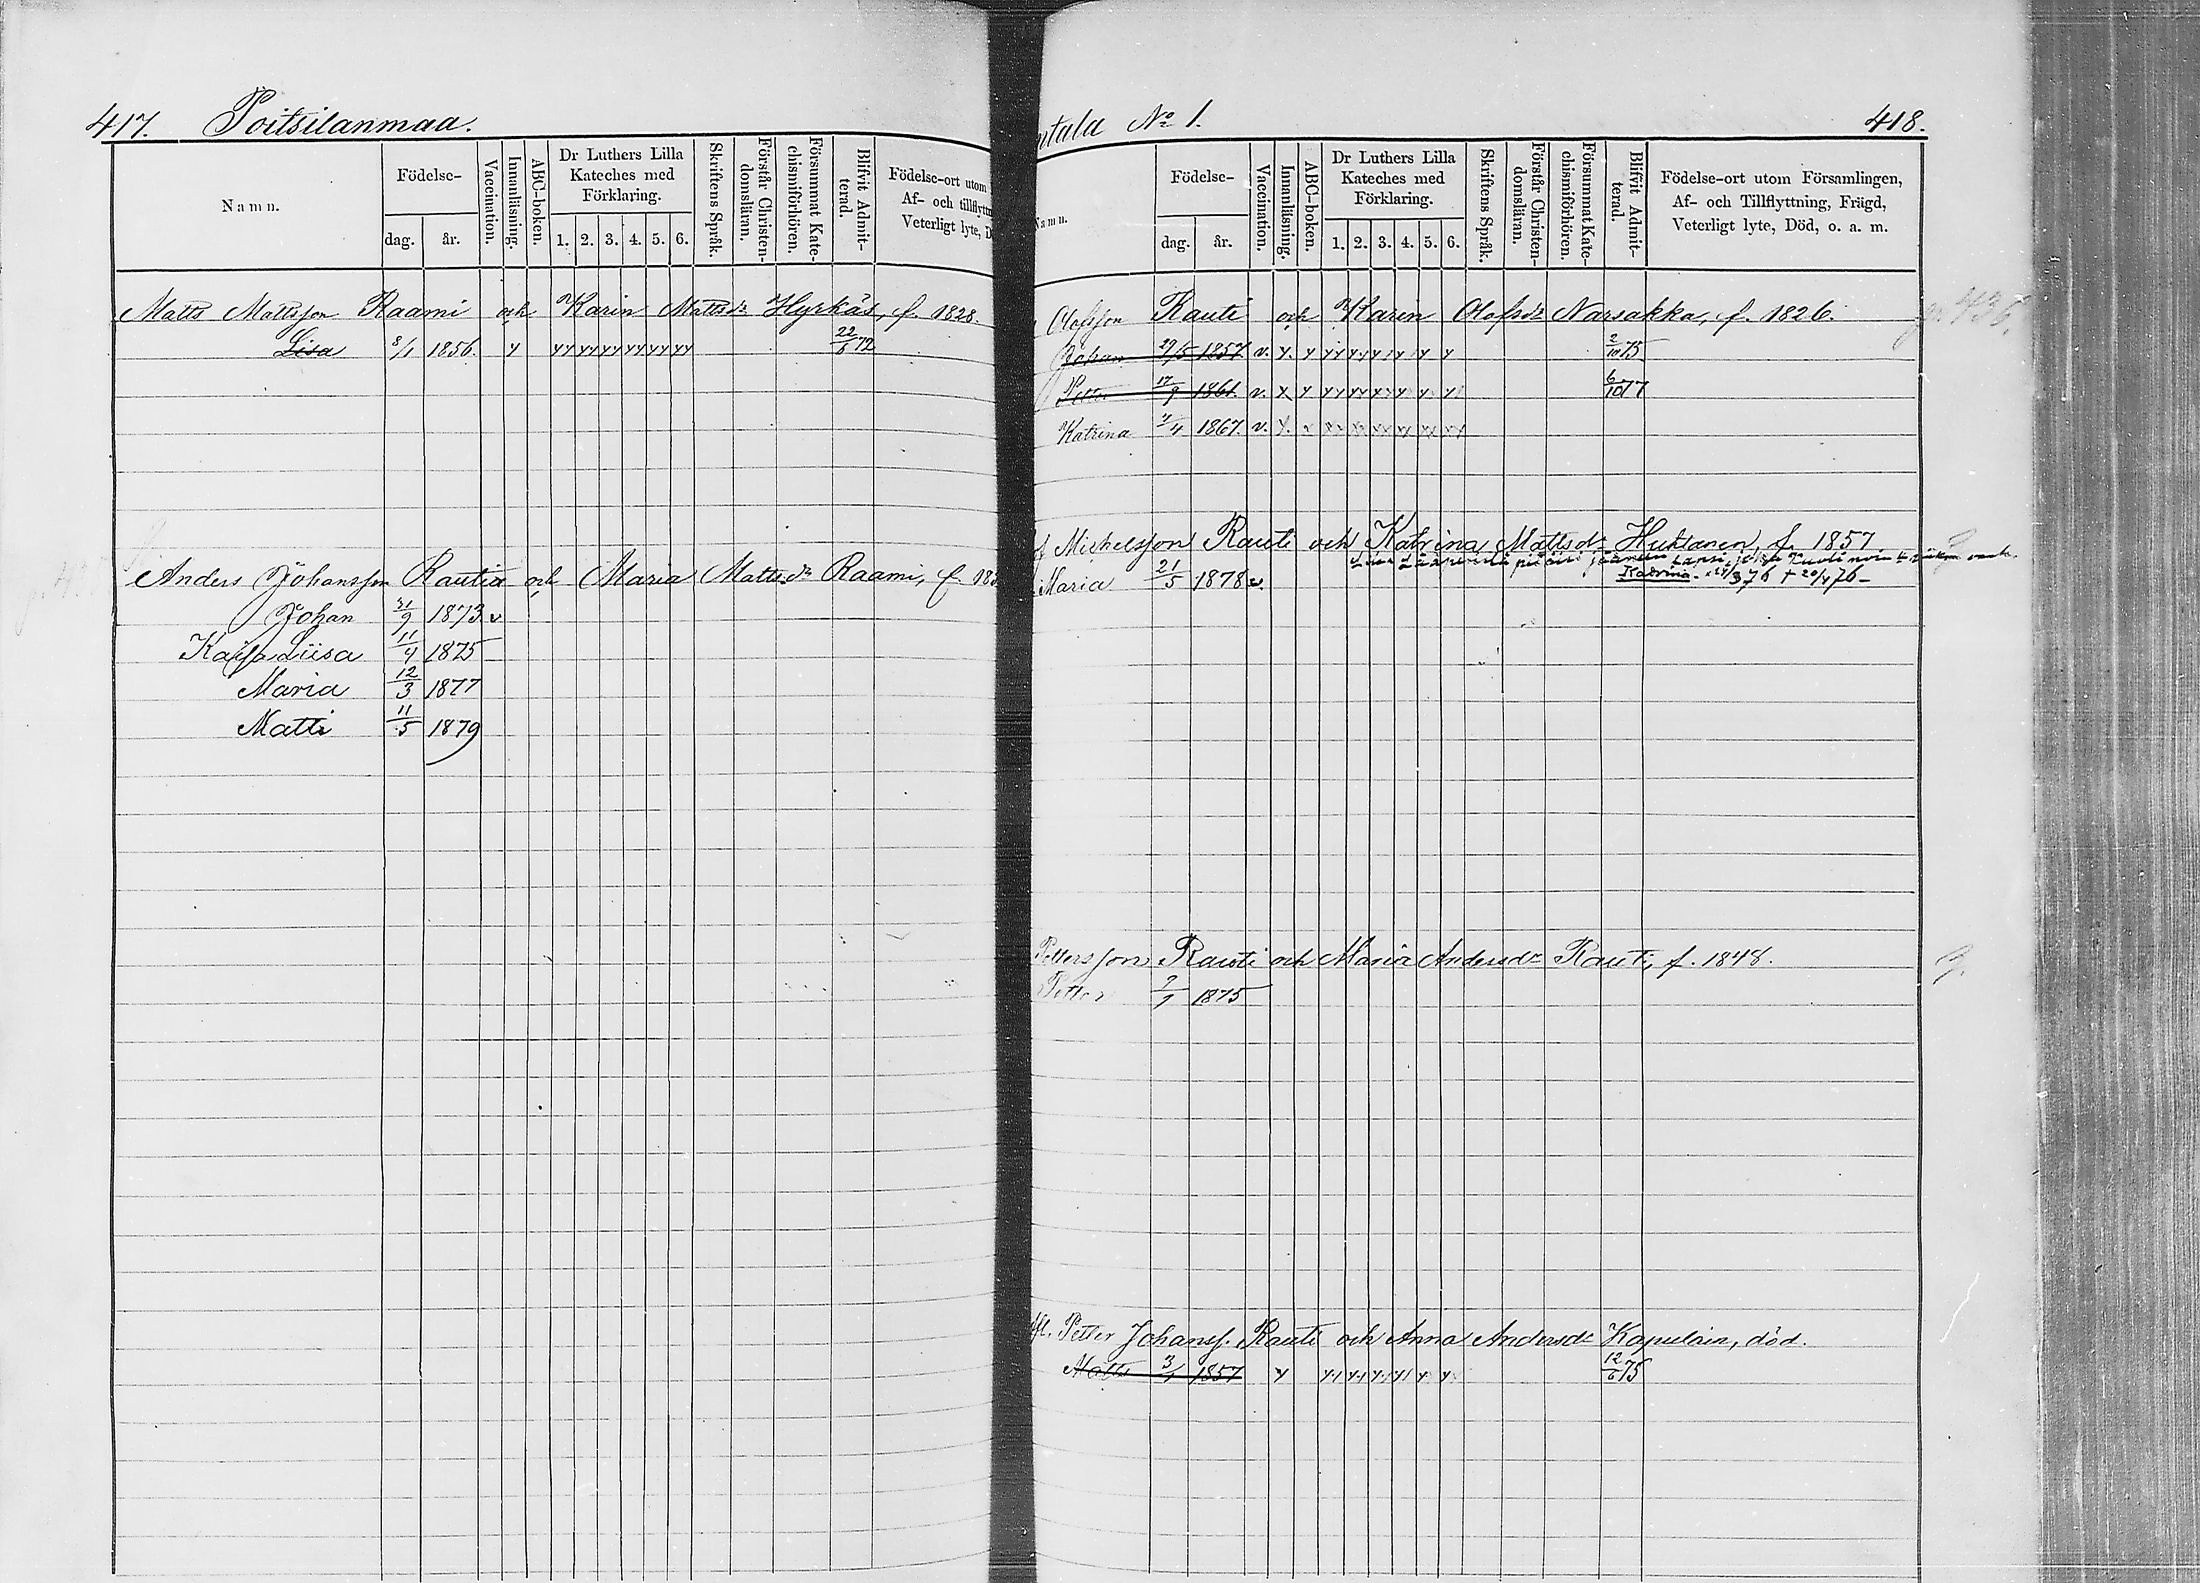 417. Poitsilanmaa.
Namn.
Födelse-
dag. år.
Vaccination.
Innanläsning.
ABC-boken.
Dr Luthers Lilla Kateches med Förklaring.
1. 2. 3. 4. 5. 6.
Skriftens Språk.
Förstår Christendomsläran.
Försummat Katechismiförhören.
Blifvit Admitterad.
Födelse-ort utom
Af- och tillflyttn
Veterligt lyte, D
Matts Mattsson Raami och Karin Mattsdr Hyrkäs, f. 1828.
Lisa 8/1 1856. 22/6 72
Anders Johansson Rautia och Maria Mattsdr Raami, f. 18
Johan 1873 v
Kajsa Liisa 11/4 1875
Maria 12/3 1877
Matti 11/5 1879
ntala No 1. 418.
Namn.
Födelse-
dag. år.
Vaccination.
Innanläsning.
ABC-boken.
Dr Luthers Lilla Kateches med Förklaring.
1. 2. 3. 4. 5. 6.
Skriftens Språk.
Förstår Christendomsläran.
Försummat Katechismiförhören.
Blifvit Admitterad.
Födelse-ort utom Församlingen,
Af- och Tillflyttning, Frägd,
Veterligt lyte, Död, o. a. m.
Olofsson Rauti och Karin Olofsdr Narsakka, f. 1826. 436.
Johan 29/5 1857 v. 2/10 75
Petter 17/9 1861. v. 6/10 77
Katrina 1867. v.
f Michelsson Rauti och Katrina Mattsdr Huktanen, f. 1857
Katrina 76 + 20/4 76
Maria 21/5 1878 v.
Pettersson Rauti och Maria Andersdr Rauti, f. 1848.
Petter 1875
afl. Petter Johanss. Rauti och Anna Andersdr Kapulain, död.
Matts 3/1 1857 12/6 75